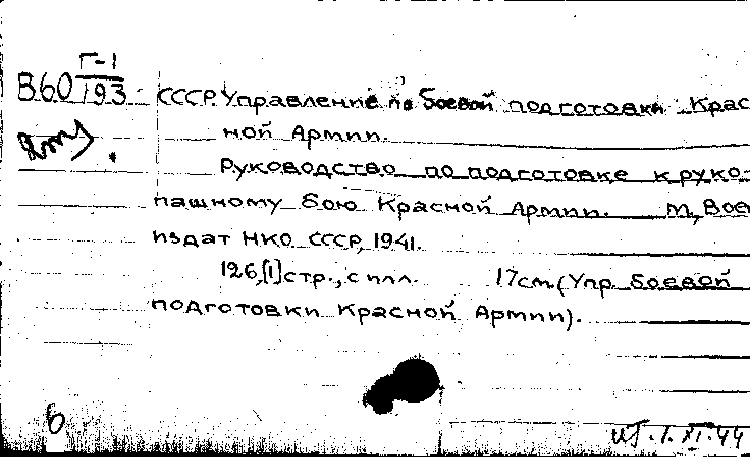 Г-I
В60 193
СССР. Управление по боевой подготовки Крас
ной Армии.
Руководство по подготовке к руко-
пашному бою Красной Армии. М, Вое
издат НКО СССР, 1941.
126,[1] стр., с илл. 17см. (Упр. боевой
подготовки Красной Армии).
6
1.XI.44